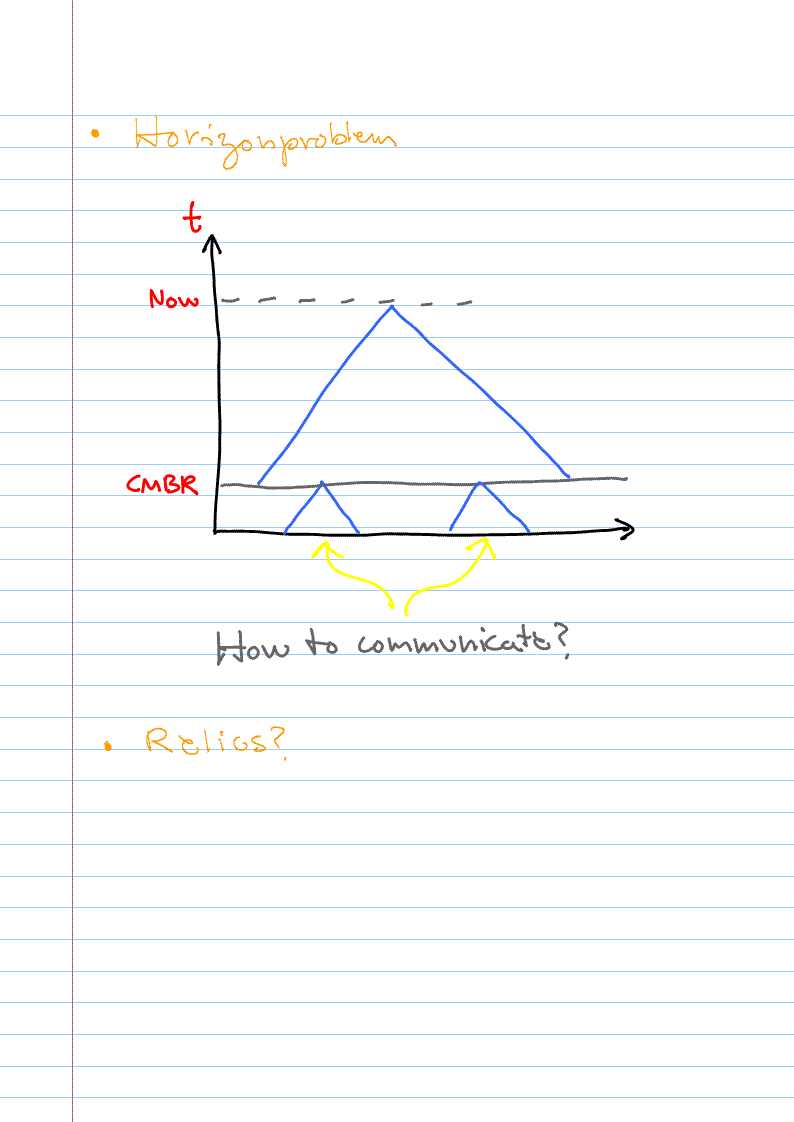 • Horizonproblem
t
Now
CMBR
How to communicate?
• Relics?